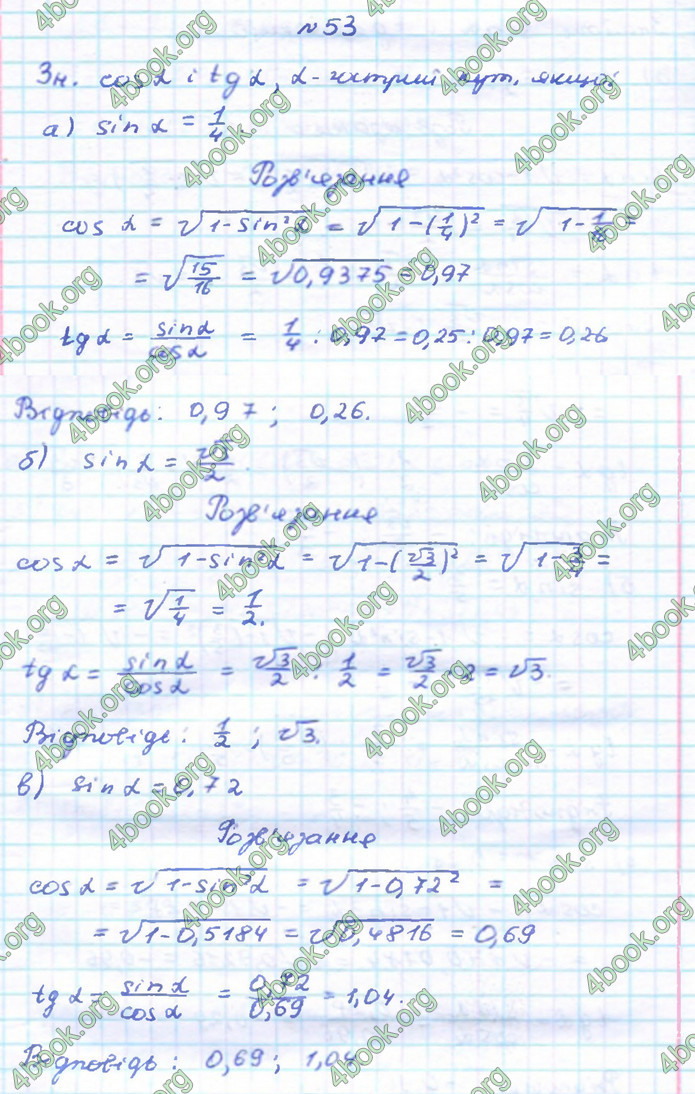 № 53
Зн. cos α і tg α, α - гострий кут, якщо:
а) sin α = 1/4.
Розв'язання
cos α = √(1-sin²α) = √(1-(1/4)²) = √(1-1/16) =
= √(15/16) = √0,9375 = 0,97
tg α = sin α/cos α = 1/4 : 0,97 = 0,25 : 0,97 = 0,26
Відповідь: 0,97; 0,26.
б) sin α = √3/2.
Розв'язання
cos α = √(1-sin²α) = √(1-(√3/2)²) = √(1-3/4) =
= √(1/4) = 1/2.
tg α = sin α/cos α = √3/2 : 1/2 = √3/2 · 2 = √3.
Відповідь: 1/2; √3.
в) sin α = 0,72
Розв'язання
cos α = √(1-sin²α) = √(1-0,72²) =
= √(1-0,5184) = √0,4816 = 0,69
tg α = sin α/cos α = 0,72/0,69 = 1,04.
Відповідь: 0,69; 1,04
4book.org